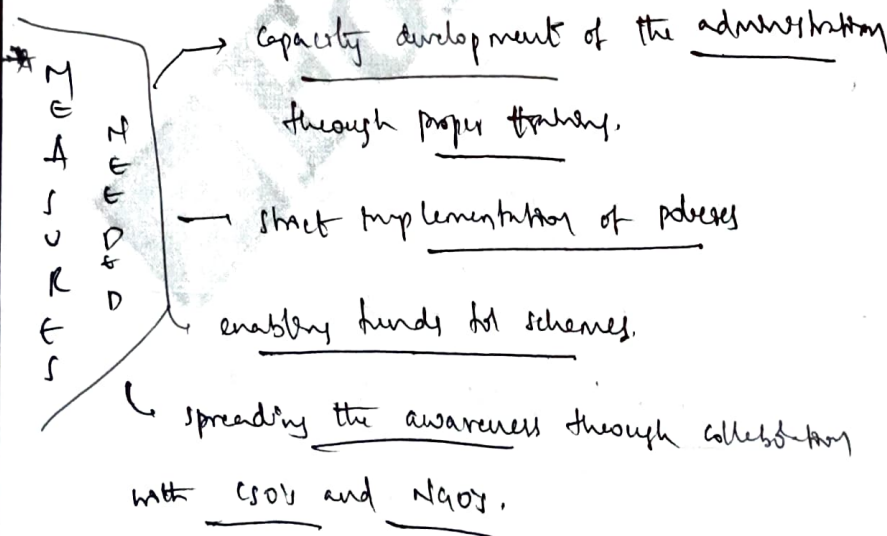 MEASURES
NEEDED
Capacity development of the administration
through proper training.
strict implementation of policies
enabling funds for schemes.
spreading the awareness through collaboration
with CSO's and NGO's.